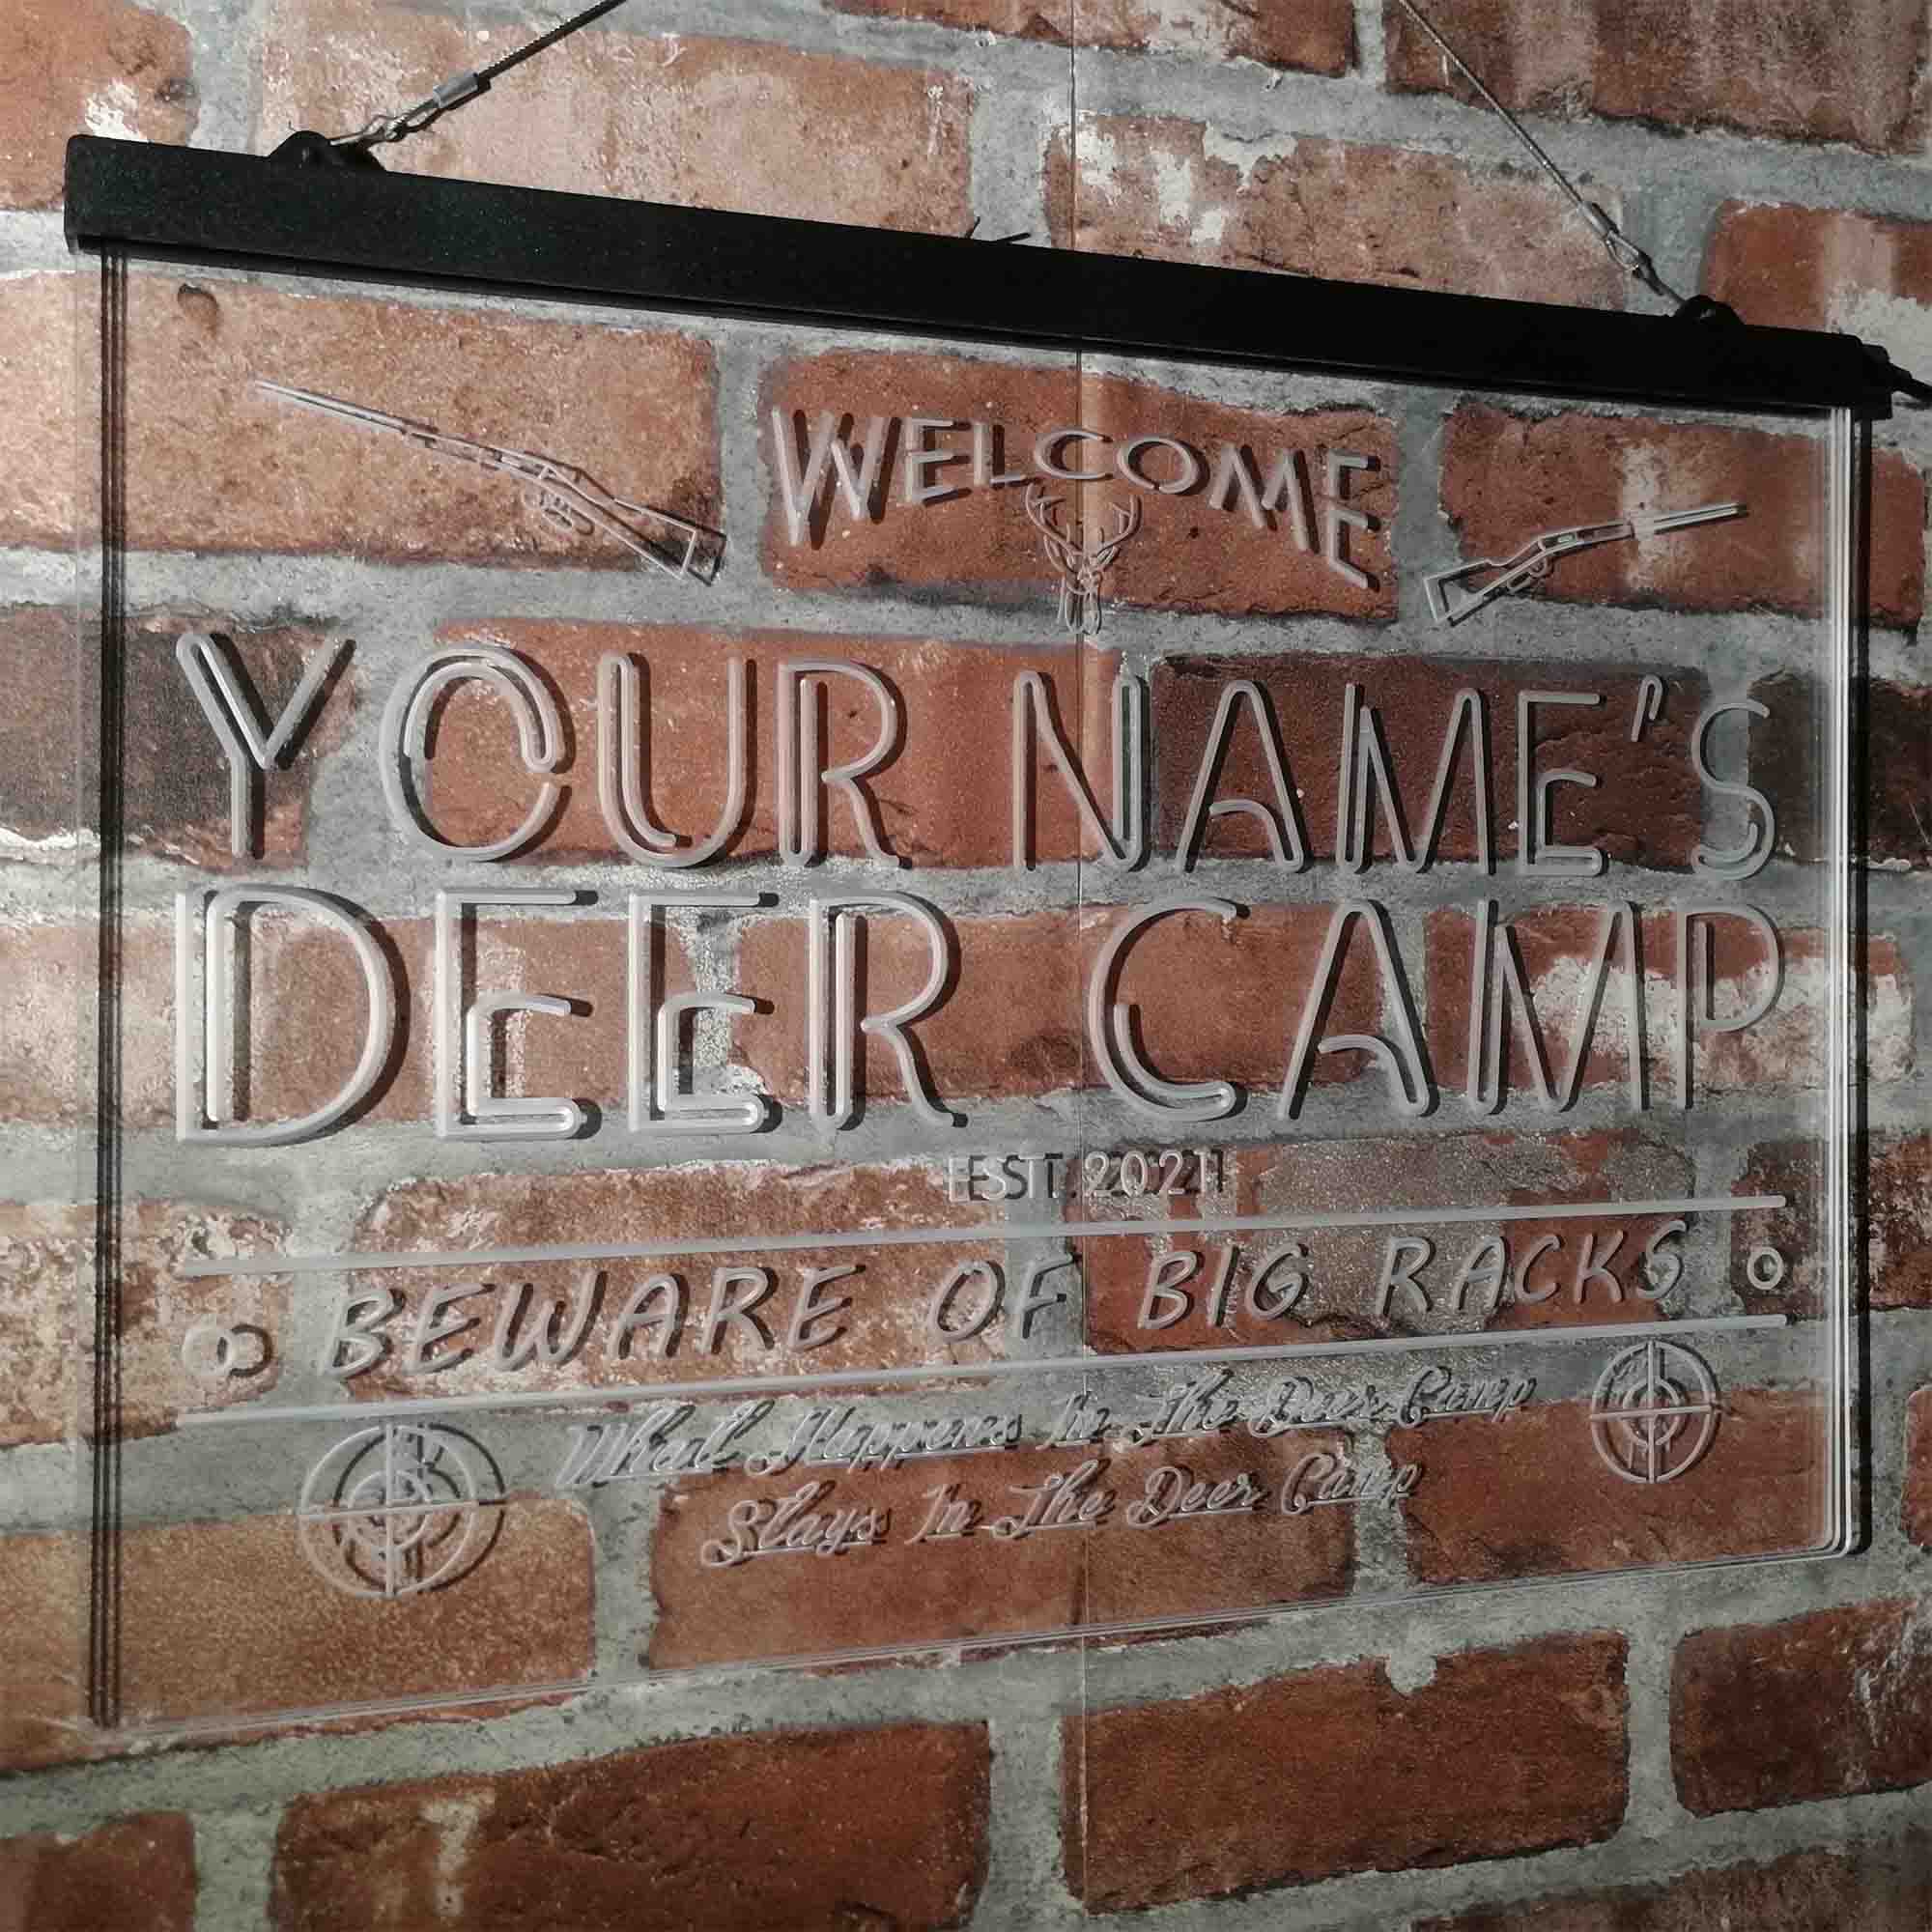 WELCOME
YOUR NAME'S
DEER CAMP
EST. 2021
BEWARE OF BIG RACKS
What Happens In The Deer Camp
Stays In The Deer Camp